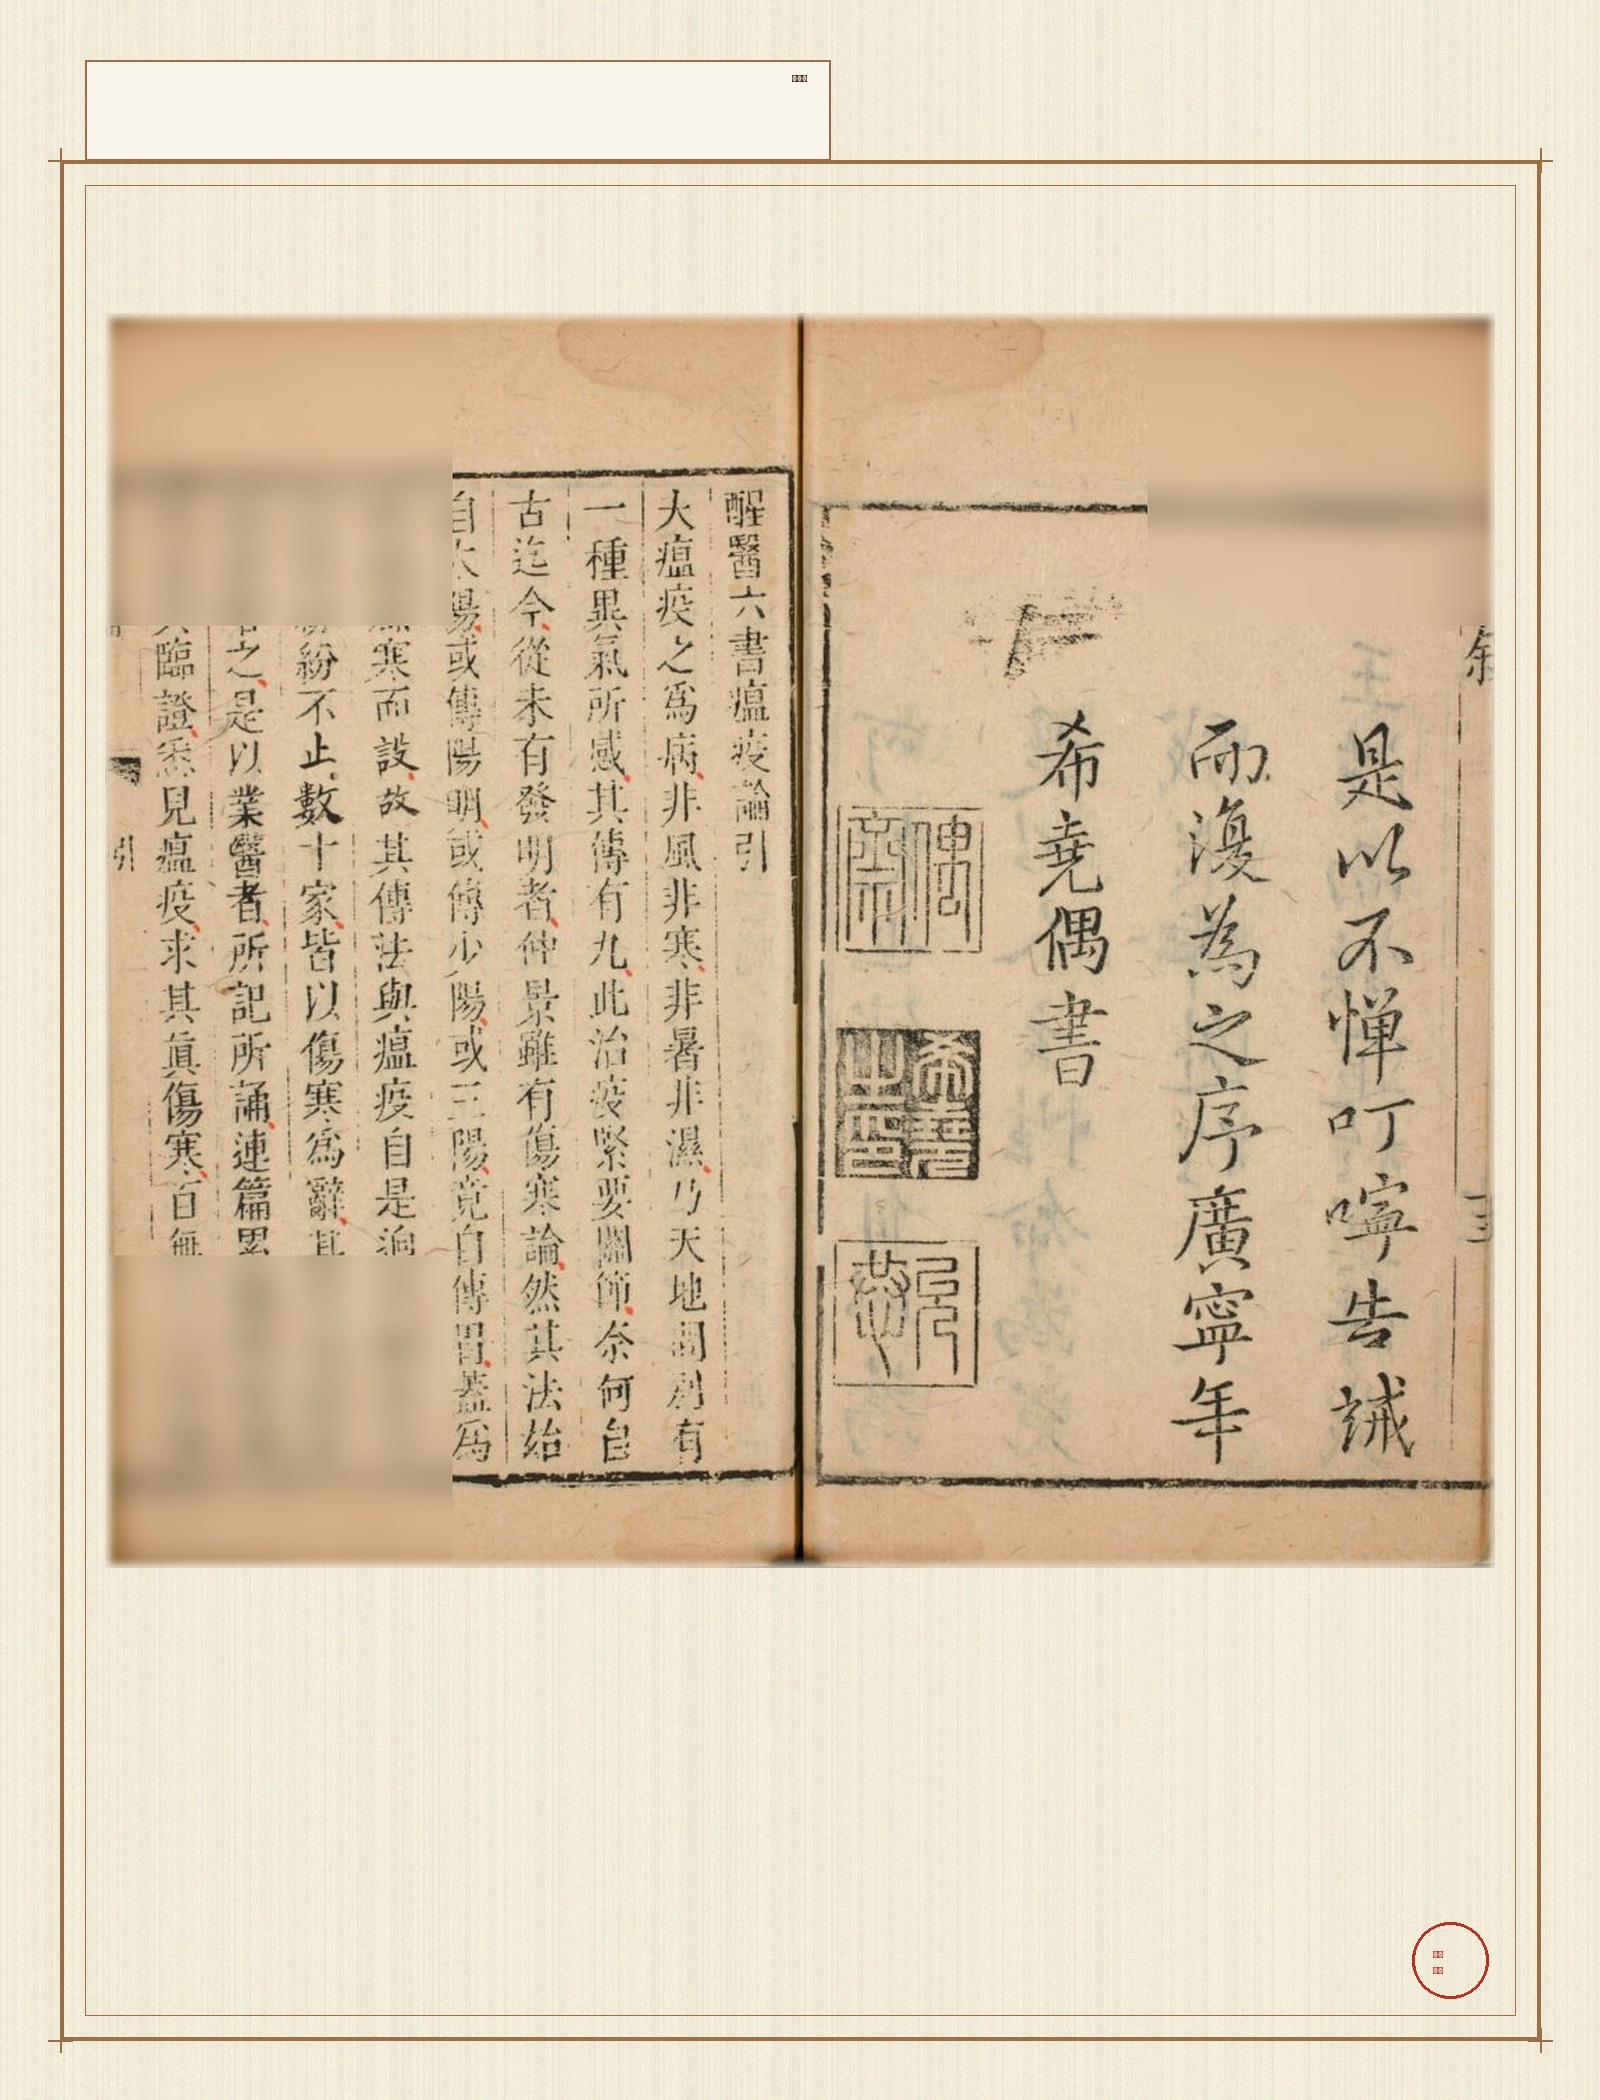 是以不憚叮嚀告誡
而復為之序廣寧年
希堯偶書
醒醫六書瘟疫論引
大瘟疫之爲病非風非寒非暑非濕乃天地間別有
一種異氣所感其傳有九此治疫緊要關節奈何自
古迄今從未有發明者仲景雖有傷寒論然其法始
自太陽或傳陽明或傳少陽或三陽竟自傳胃蓋爲
寒而設故其傳法與瘟疫自是
紛不止數十家皆以傷寒爲辭其
之是以業醫者所記所誦連篇累
臨證悉見瘟疫求其眞傷寒百無
引